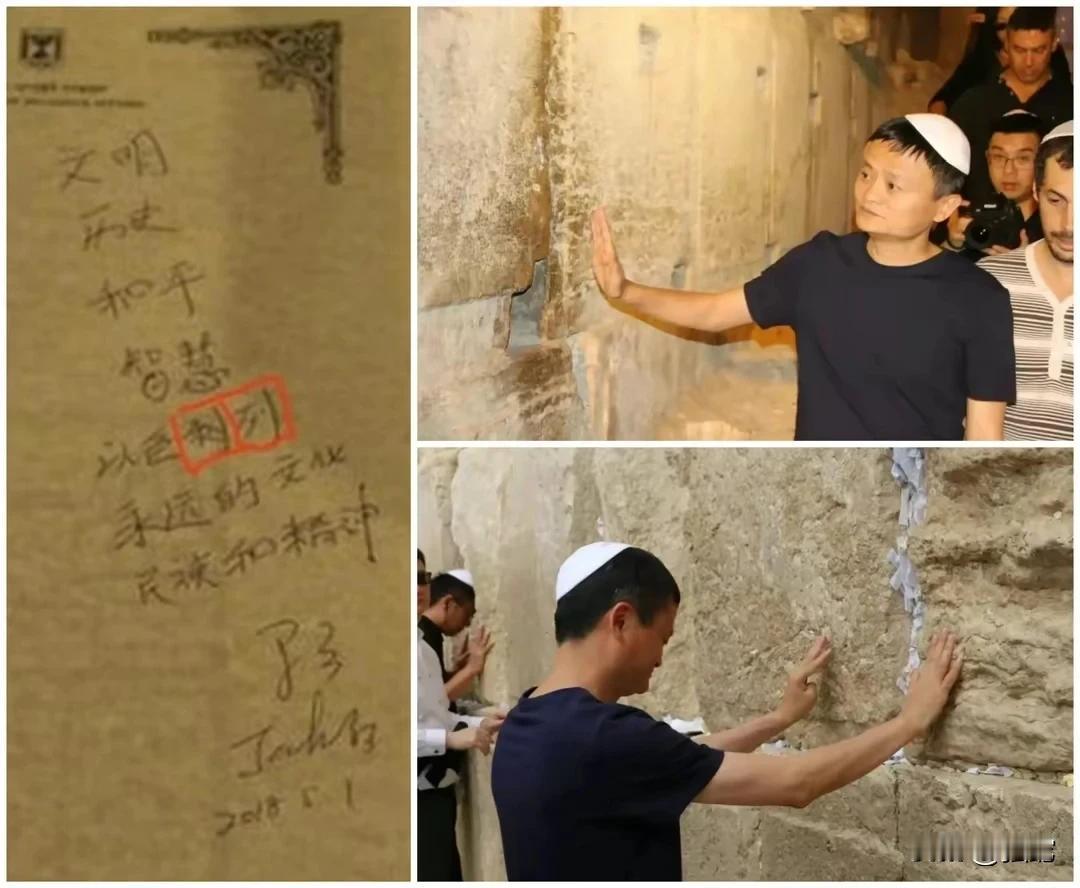 文明
历史
和平
智慧
以色 列
永远的文化
民族和精神
马云
Jack
2018 5.1